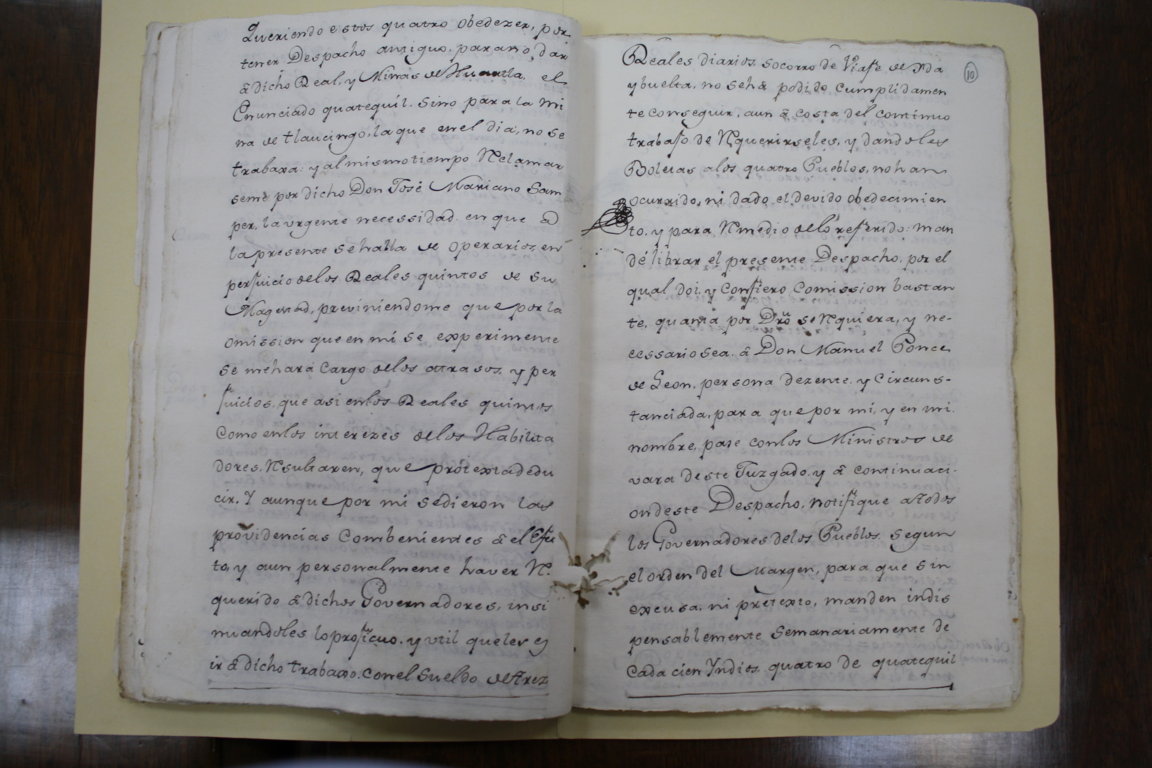 Queriendo estos quatro obedezer, por
tener Despacho antiguo, para no, dar
â dicho Real, y Minas de Huautla, el
Enunciado quatequil. sino para la Mi
na de tlaucingo, la que en el dia, no se
trabaxa: y al mismo tiempo Reclamar
seme por dicho Don José Mariano Sam
per, la urgente necessidad en que â
la presente se halla de operarios, en
perjuicio de los Reales quintos de Su
Magestad, previniendome que por la
omission que en mi se experimente
se me hará Cargo de los atrasos, y per
juicios, que asi en los Reales quintos
como en los interezes de los Habilita
dores, Resultaren, que protexta dedu
cir. Y aunque por mi se dieron las
providencias Combenientes â el Efec
to, y aun personalmente haver Re
querido â dichos Governadores, insi
nuandoles lo proficuo, y util que les es
ir â dicho trabaxo. con el Sueldo de trez
10
Reales diarios socorro de Viaje de Yda
y buelta, no se ha podido, Cumplidamen
te conseguir, aun â costa del continuo
trabajo de Requerirseles, y dandoles
Boletas a los quatro Pueblos, no han
ocurrido, ni dado, el devido obedecimien
to, y para Remedio de lo referido: man
dé librar el presente Despacho, por el
qual doi, y Confiero Comission bastan
te, quanta por Dro se Requiera, y ne-
cessario sea. â Don Manuel Ponce
de Leon, persona dezente, y Circuns-
tanciada, para que por mi, y en mi
nombre, pase con los Ministros de
vara de este Juzgado y â continuaci-
on deste Despacho, notifique a todos
los Governadores de los Pueblos segun
el orden del Margen, para que sin
excusa, ni pretexto, manden indis
pensablemente Semanariamente de
Cada cien Yndios quatro de quatequil